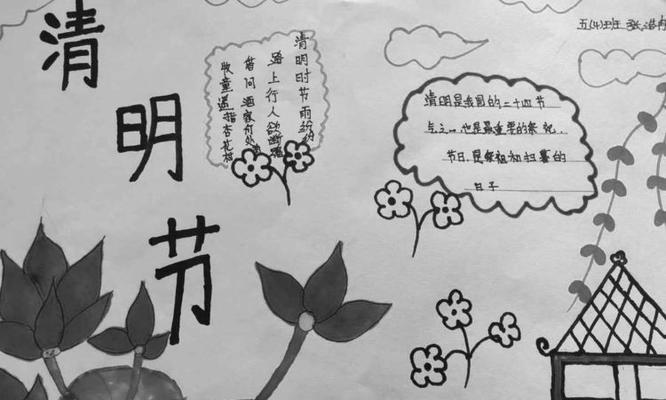 清明节
五(4)班 张浩
清明时节雨纷纷
路上行人欲断魂
借问酒家何处
牧童遥指杏花村
清明是我国的二十四节
之一也是最重要的祭祀,
节日,是祭祖和扫墓的
日子